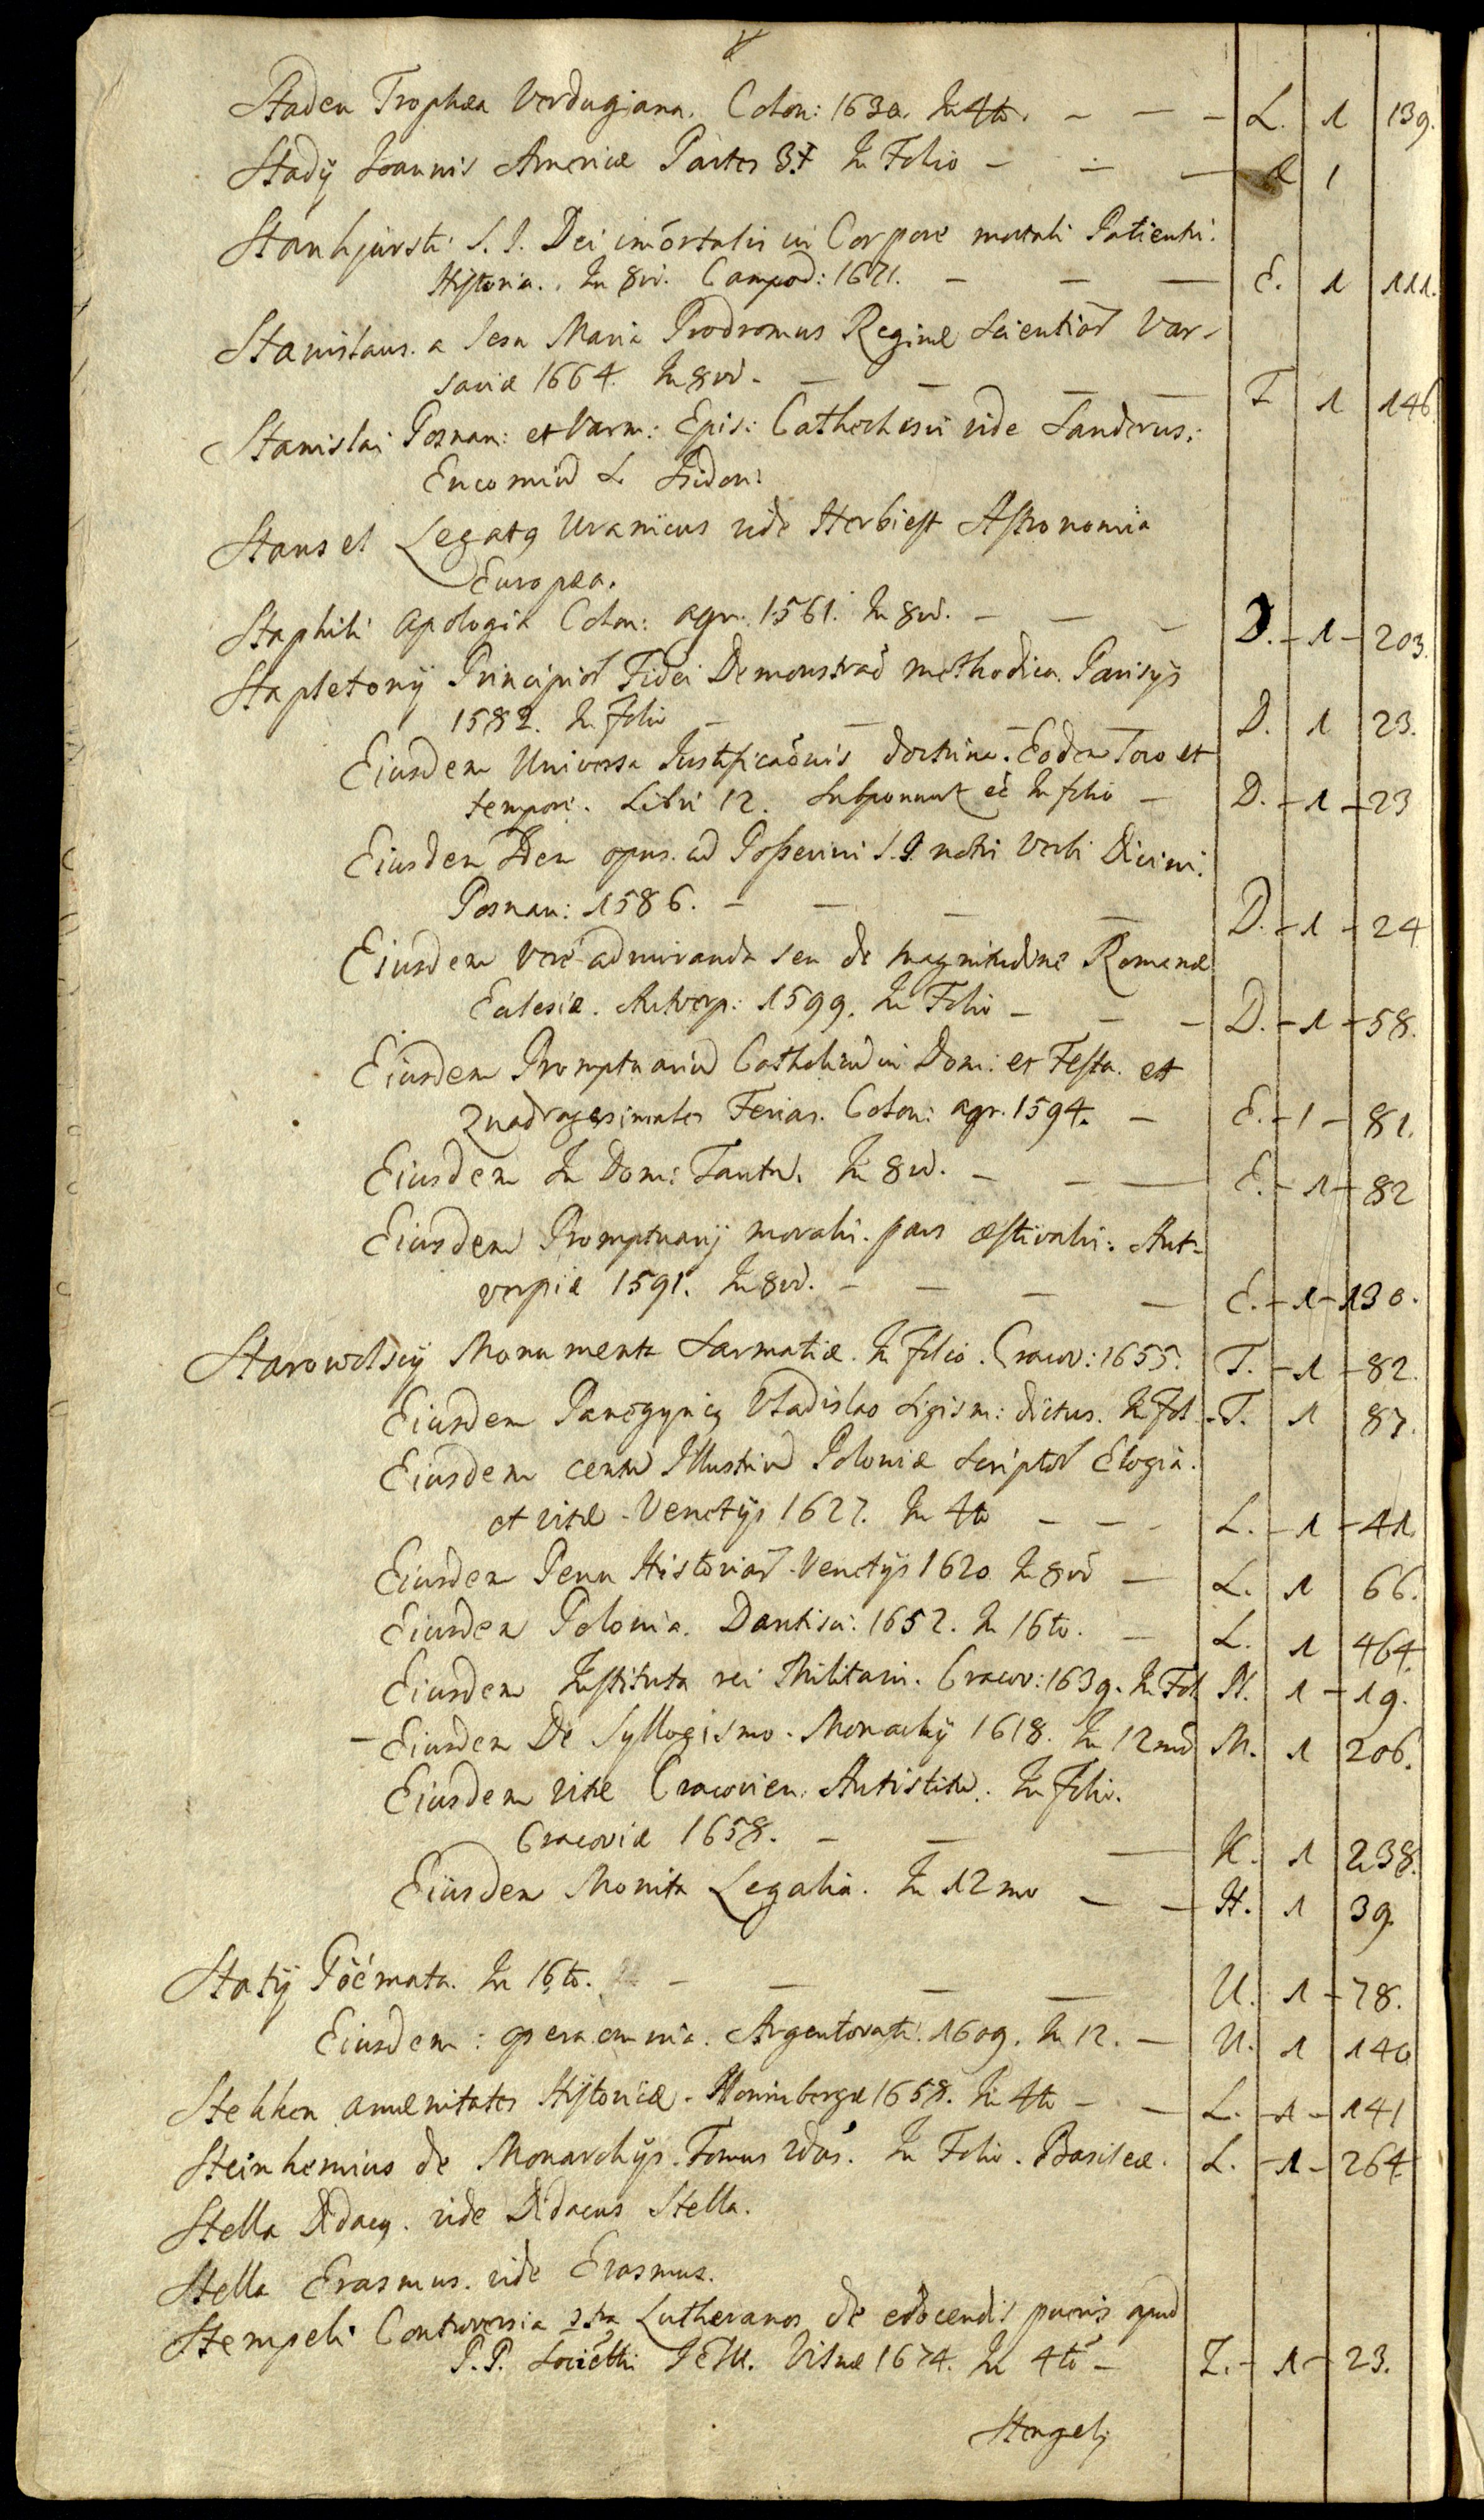 Staden Trophæa Verdugiana. Colon: 1630. In 4to. — — — L. 1 139.
Stadÿ Joannis Americæ Partes 3. In Folio — — — 1
Stanhjursti S. J. Dei imōrtalis in Corpore mortali Patientis
Historia. In 8vo. Campod: 1671. — — — E. 1 111.
Stanislaus. a Jesu Maria Prodromus Reginæ Scientiar Var-
saviæ 1664. In 8vo. — — — — 1 146
Stanislai Posnan: et Varm: Epis: Cathechesis vide Sanderus.
Encomiu S. Isidori
Stansel Legatq Uranicus vide Herbiest Astronomia
Europæa.
Staphili Apologia Colon: agr. 1561. In 8vo. — — — D. – 1 – 203.
Stapletonÿ Principior Fidei Demonstrao methodica. Parisÿs
1582. In folio — — — D. 1 23.
Eiusdem Universa Justificaōnis doctrina. Eodem loco et
tempore. Libri 12. Subponunt ei In folio — D. – 1 – 23
Eiusdem Idem opus. ad Possevini S. J. notis Verbi Divini.
Posnan: 1586. — — — — D. – 1 – 24
Eiusdem vere admiranda seu de magnitudine Romanæ
Eclesiæ. Antverp: 1599. In Folio — — — D. – 1 – 58.
Eiusdem Promptuariu Catholicu in Dom: et Festa. et
Quadragesimales Ferias. Colon: agr. 1594. — E. – 1 – 81.
Eiusdem In Dom: Tantu. In 8vo. — — — E. – 1 – 82
Eiusdem Promptuarÿ moralis. pars æstivalis. Ant-
verpiæ 1591. In 8vo. — — — — E. – 1 – 130.
Starowolscÿ Monumenta Sarmatiæ. In folio. Cracov: 1655. T. – 1 – 82.
Eiusdem Panegyricq Vladislao Sigism: dictus. In fol. T. 1 87.
Eiusdem centu Illustriu Poloniæ Scriptor Elogia.
et vitæ. Venetÿs 1627. In 4to — — — L. – 1 – 41.
Eiusdem Penu Historiar. Venetÿs 1620 In 8vo — L. 1 66.
Eiusdem Polonia. Dantisci: 1652. In 16to. — L. 1 464.
Eiusdem Instituta rei Militaris. Cracov: 1639. In Fol N. 1 – 19.
– Eiusdem De Syllogismo. Monachÿ 1618. In 12mo M. 1 206.
Eiusdem vitæ Cracovien: Antistitu. In folio.
Cracoviæ 1658. — — — K. 1 238.
Eiusdem Monita Legalia. In 12mo — — H. 1 39.
Statÿ Poëmata. In 16to. — — — — U. 1 – 78.
Eiusdem: opera omnia. Argentorati. 1609. In 12. — U. 1 140
Stekken amænitates Historicæ. Norimbergæ 1658. In 4to — — L. – 1 – 141
Steinhemius de Monarchÿs. Tomus 2dus. In Folio. Basileæ. L. – 1 – 264
Stella Didacq. vide Didacus Stella.
Stella Erasmus. vide Erasmus.
Stempeli Controversia Lutheranos de edocendis pueris apud
P. P. Sociētti JESU. Vilnæ 1674. In 4to — Z. – 1 – 23.
Stengelj